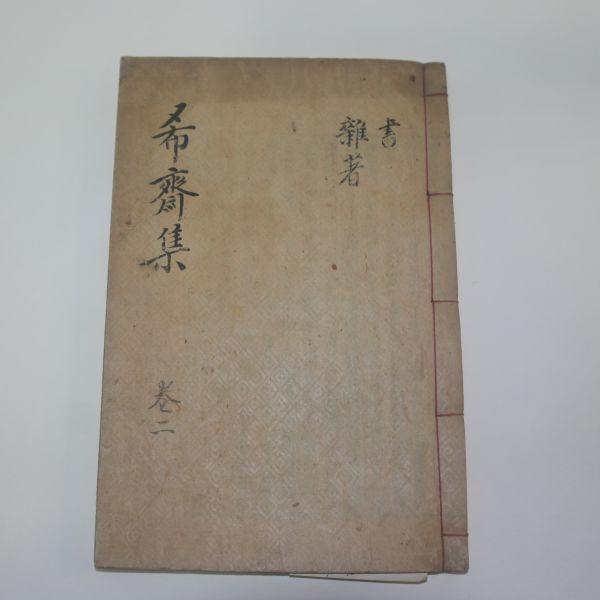 希齋集
卷二
書
雜著